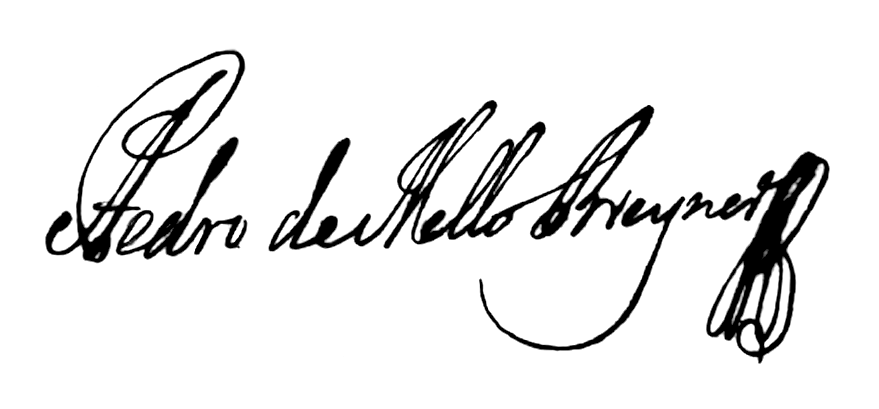 Pedro de Mello Breyner